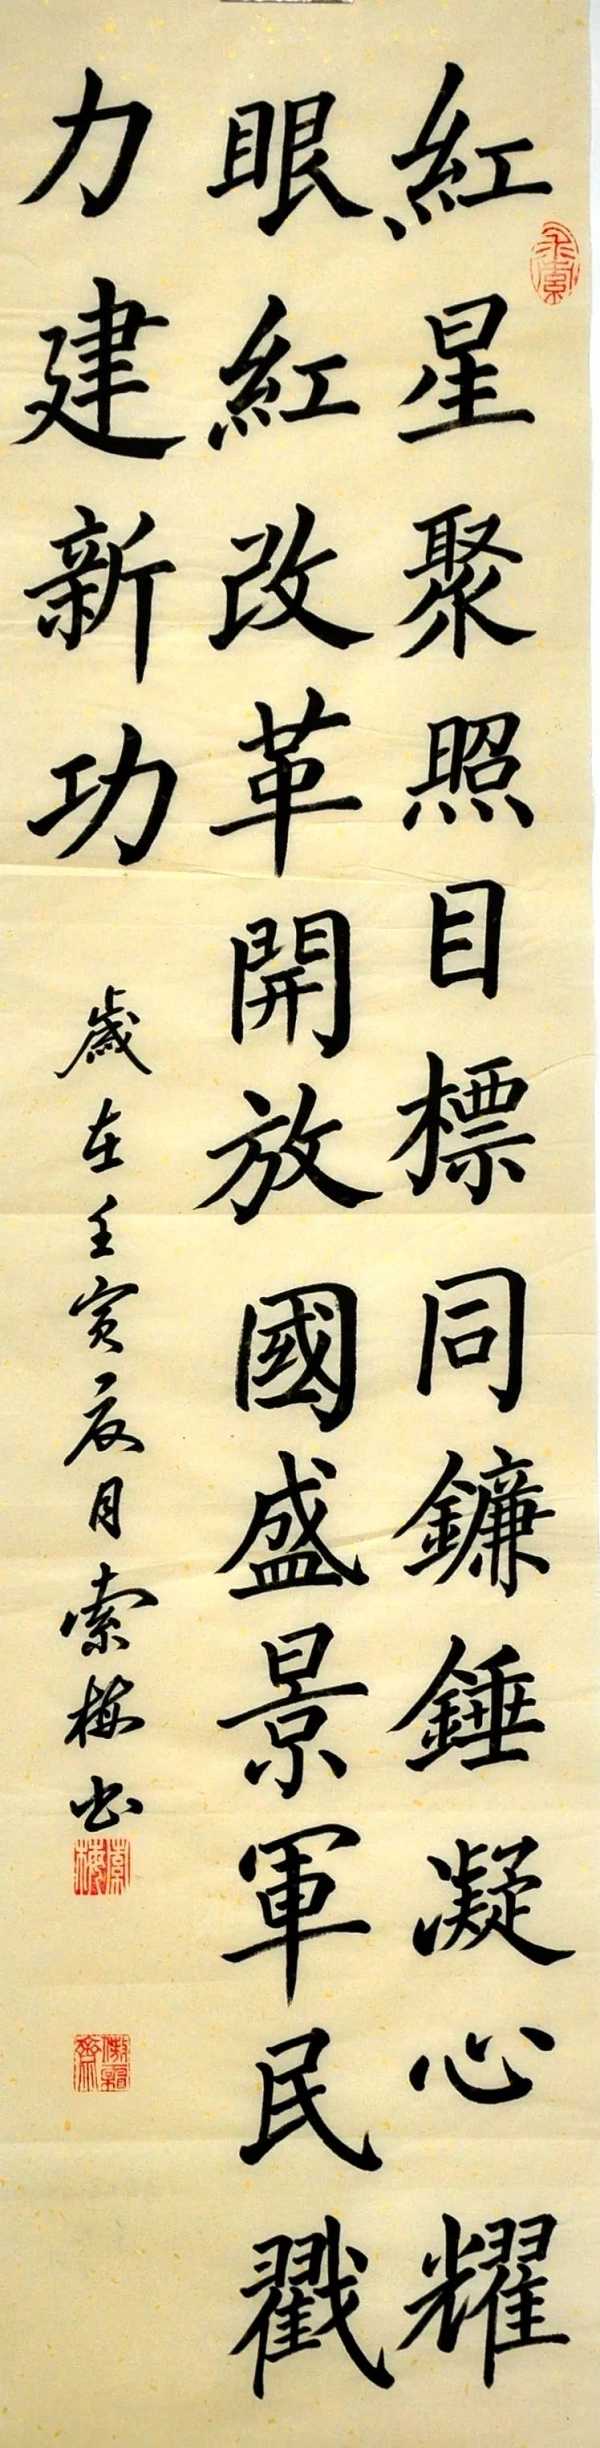 紅星聚照目標同鐮錘凝心耀
眼紅改革開放國盛景軍民戮
力建新功
歲在壬寅夜月索梅书
索梅